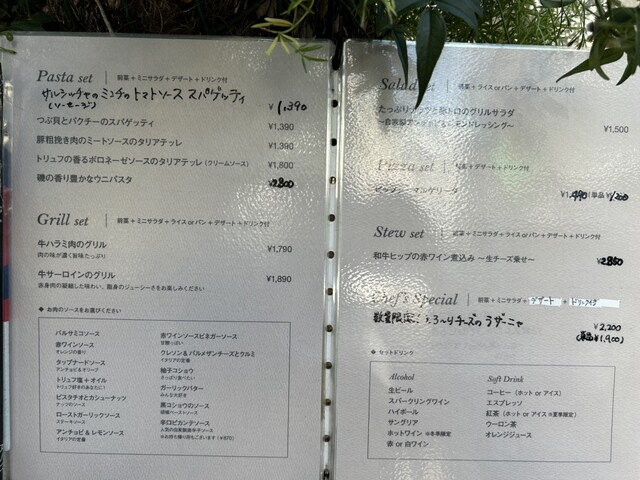 Pasta set | 前菜 + ミニサラダ + デザート + ドリンク付
サルシッチャのミンチのトマトソース スパゲッティ
(ソーセージ) ¥1,390
つぶ貝とパクチーのスパゲッティ ¥1,390
豚粗挽き肉のミートソースのタリアテッレ ¥1,390
トリュフの香るボロネーゼソースのタリアテッレ (クリームソース) ¥1,800
磯の香り豊かなウニパスタ ¥2800
Grill set | 前菜 + ミニサラダ + ライス or パン + デザート + ドリンク付
牛ハラミ肉のグリル ¥1,790
肉の味が濃く旨味たっぷり
牛サーロインのグリル ¥1,890
赤身肉の凝縮した味わい、脂身のジューシーさをお楽しみください
◆ お肉のソースをお選びください
バルサミコソース
赤ワインソース
オレンジの香り
タップナードソース
アンチョビ & オリーブ
トリュフ塩 + オイル
トリュフ好きのあなたに!
ピスタチオとカシューナッツ
ナッツのソース
ローストガーリックソース
ステーキソース
アンチョビ & レモンソース
イタリアの定番
赤ワインソースビネガーソース
甘酸っぱい
クレソン & パルメザンチーズとクルミ
イタリアの定番
柚子コショウ
さっぱり食べたい
ガーリックバター
みんな大好き
黒コショウのソース
胡椒ペーストソース
辛口ピカンテソース
人気の自家製唐辛子ソース
※お持ち帰り用もございます (¥870)
Salad set | 前菜 + ライス or パン + デザート + ドリンク付
たっぷり
のグリルサラダ
ドレッシング〜 ¥1,500
Pizza set | 前菜 + デザート + ドリンク付
マルゲリータ ¥1,490 (単品 ¥1,200
Stew set | 前菜 + ミニサラダ + ライス or パン + デザート + ドリンク付
和牛ヒップの赤ワイン煮込み 〜生チーズ乗せ〜 ¥2850
Chef's Special | 前菜 + ミニサラダ + デザート + ドリンク付
数量限定: とろ〜りチーズのラザーニャ
¥2,200
(単品¥1,900)
◆ セットドリンク
Alcohol
生ビール
スパークリングワイン
ハイボール
サングリア
ホットワイン ※冬季限定
赤 or 白ワイン
Soft Drink
コーヒー (ホット or アイス)
エスプレッソ
紅茶 (ホット or アイス ※夏季限定)
ウーロン茶
オレンジジュース